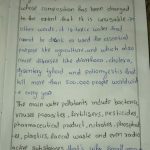 whose composition has been changed
to the extent that it is unusable. In
other words, it is toxic water that
cannot be drunk or used for essential
purpose like agriculture, and which also
cause diseases like diarrhoea, cholera,
dysentery, typhoid and poliomyelitis that
kill more than 500,000 people worldwide
every year.
The main water pollutants include bacteria,
viruses, parasites, fertilizers, pesticides,
pharmaceutical product, nitrates, phosphat
es, plastics, faecal waste and even radio
active substances